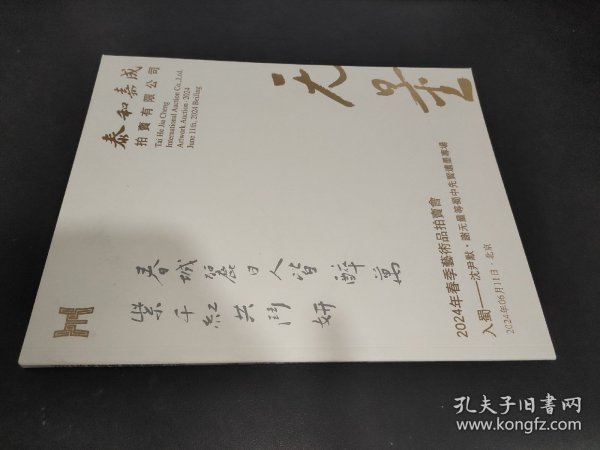 泰和嘉成
拍賣有限公司
Tai He Jia Cheng
International Auction Co.,Ltd.
Artwork Auction·2024
June 11th, 2024 Beijing
春城麗日人皆醉萬
柴千紅共鬥妍
2024年春季藝術品拍賣會
入蜀——沈尹默·謝元量等蜀中先賢遺墨專場
2024年06月11日·北京
孔夫子旧书网
www.kongfz.com